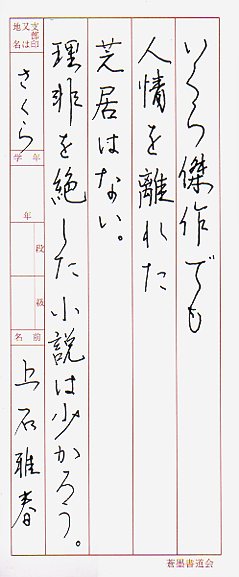 いくら傑作でも
人情を離れた
芝居はない。
理非を絶した小説は少かろう。
支部印又は地名
さくら
学年
年
段
級
名前
上石雅春
蒼墨書道会